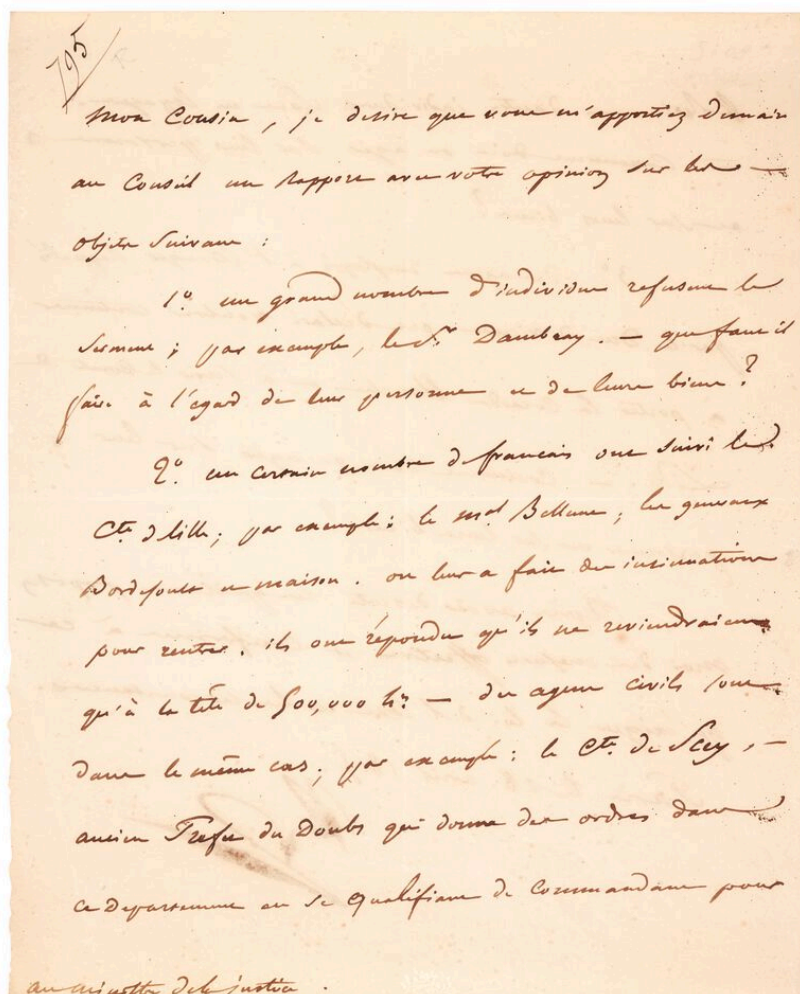 795
Mon Cousin, je desire que vous m'apportiez demain
au Conseil un Rapport avec votre opinion sur les —
objets suivans :
1º. un grand nombre d'individus refusent le
serment ; par exemple, le Sr. Dambray. — que faut il
faire à l'égard de leur personne et de leurs biens ?
2º. un certain nombre de francais ont suivi le
Cte. de lille ; par exemple : le mal Bellune, les generaux
Bordesoult et maison. on leur a fait des insinuations
pour rentrer. ils ont répondu qu'ils ne reviendraient
qu'à la tête de 500,000 hes — des agens civils sont
dans le même cas ; par exemple : le Cte. de Scey, —
ancien Prefet du Doubs qui donne des ordres dans
ce Departement en se qualifiant de Commandant pour
au ministre de la justice .